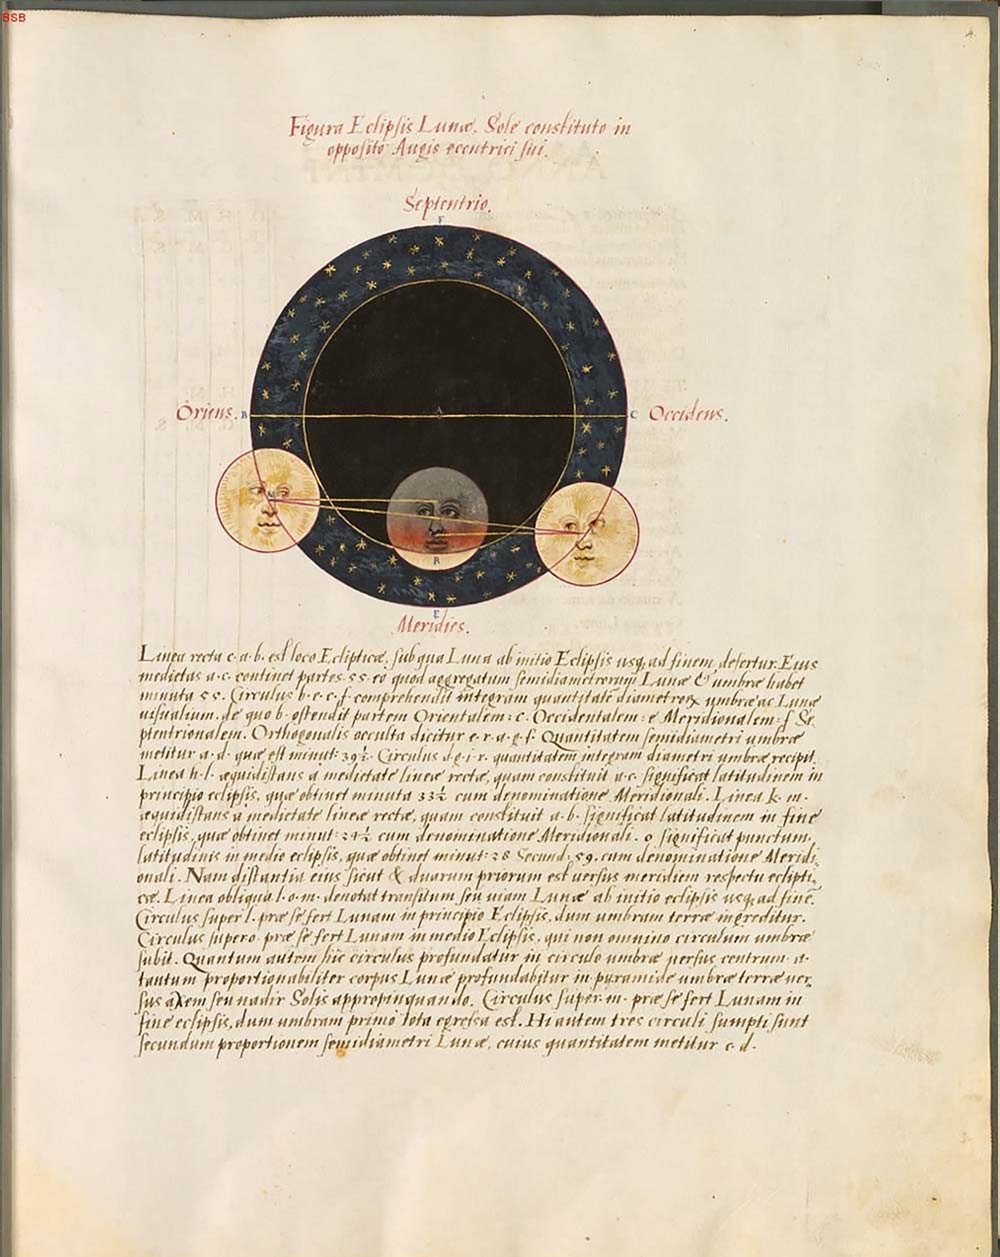 BSB
4.
Figura Eclipsis Lunæ. Sole constituto in
opposito Augis eccentrici sui.
Septentrio.
F
Oriens. B A C Occidens.
M
R
E
Meridies.
Linea recta c·a·b· est loco Eclipticæ, sub qua Luna ab initio Eclipsis usq; ad finem, defertur. Eius
medietas a·c· continet partes·55·eo quod aggregatum semidiametrorum Lunæ & umbræ habet
minuta 55. Circulus b·e·c·f· comprehendit integram quantitatē diametrorū umbræ ac Lunæ
uisualium. de quo b· ostendit partem Orientalem: c· Occidentalem: e Meridionalem: f Se,
ptentrionalem. Orthogonalis occulta dicitur e·r·a·g·f· Quantitatem semidiametri umbræ
metitur a·d· quæ est minut: 39½. Circulus d·g·i·r· quantitatem integram diametri umbræ recipit.
Linea h·l· æquidistans a medietate lineæ rectæ, quam constituit a·c· significat latitudinem in
principio eclipsis, quæ obtinet minuta 33½ cum denominatione Meridionali. Linea k· m·
æquidistans a medietate lineæ rectæ, quam constituit a·b· significat latitudinem in fine
eclipsis, quæ obtinet minut: 24½ cum denominatione Meridionali. o significat punctum
latitudinis in medio eclipsis, quæ obtinet minut: 28 Secund: 59. cum denominatione Meridi,
onali. Nam distantia eius sicut & duarum priorum est uersus meridiem respectu eclipti,
cæ. Linea obliqua l·o·m· denotat transitum seu uiam Lunæ ab initio eclipsis usq; ad finē.
Circulus super l· præ se fert Lunam in principio Eclipsis, dum umbram terræ ingreditur.
Circulus super o· præ se fert Lunam in medio Eclipsis, qui non omnino circulum umbræ
subit. Quantum autem hic circulus profundatur in circulo umbræ uersus centrum· a·
tantum proportionabiliter corpus Lunæ profundabitur in pyramide umbræ terræ uer,
sus axem seu nadir Solis appropinquando. Circulus super·m· præ se fert Lunam in
fine eclipsis, dum umbram primo tota egressa est. Hi autem tres circuli sumpti sunt
secundum proportionem semidiametri Lunæ, cuius quantitatem metitur c·d·